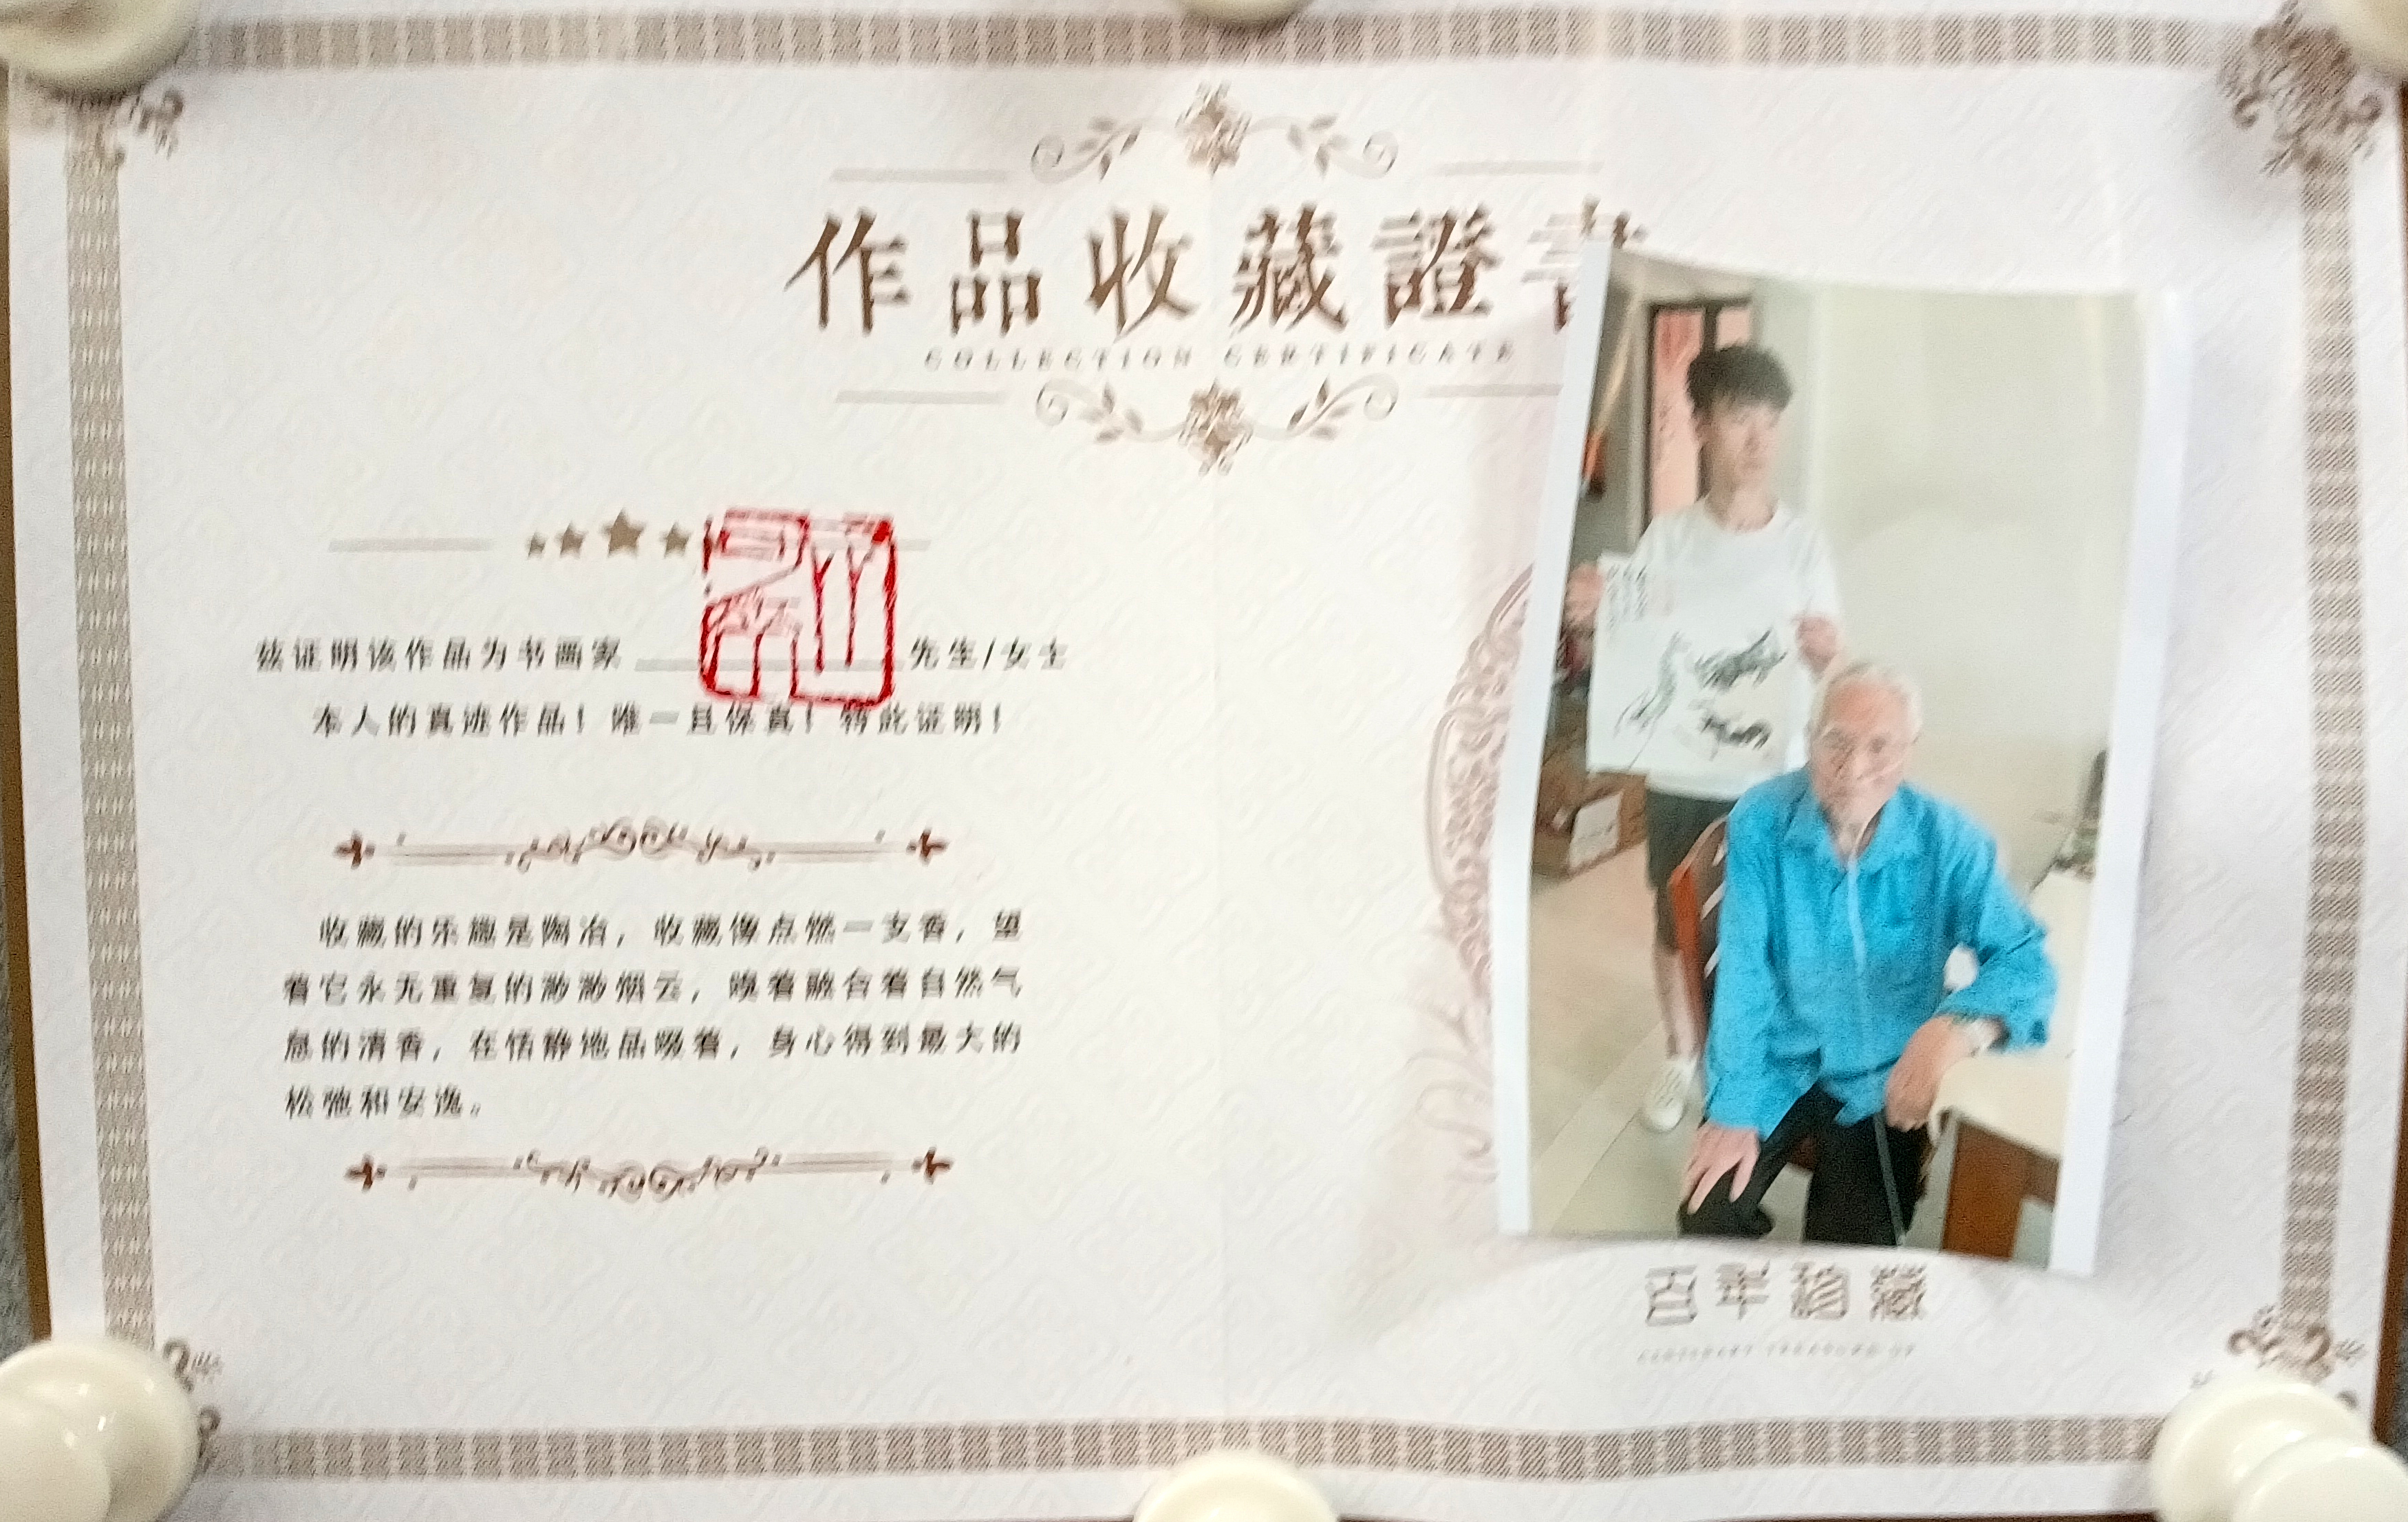 作品收藏證書
COLLECTION CERTIFICATE
兹证明该作品为书画家 先生/女士
本人的真迹作品！唯一且保真！特此证明！
收藏的乐趣是陶冶，收藏像点燃一支香，望
着它永无重复的渺渺烟云，嗅着融合着自然气
息的清香，在恬静地品吸着，身心得到最大的
松弛和安逸。
百年珍藏